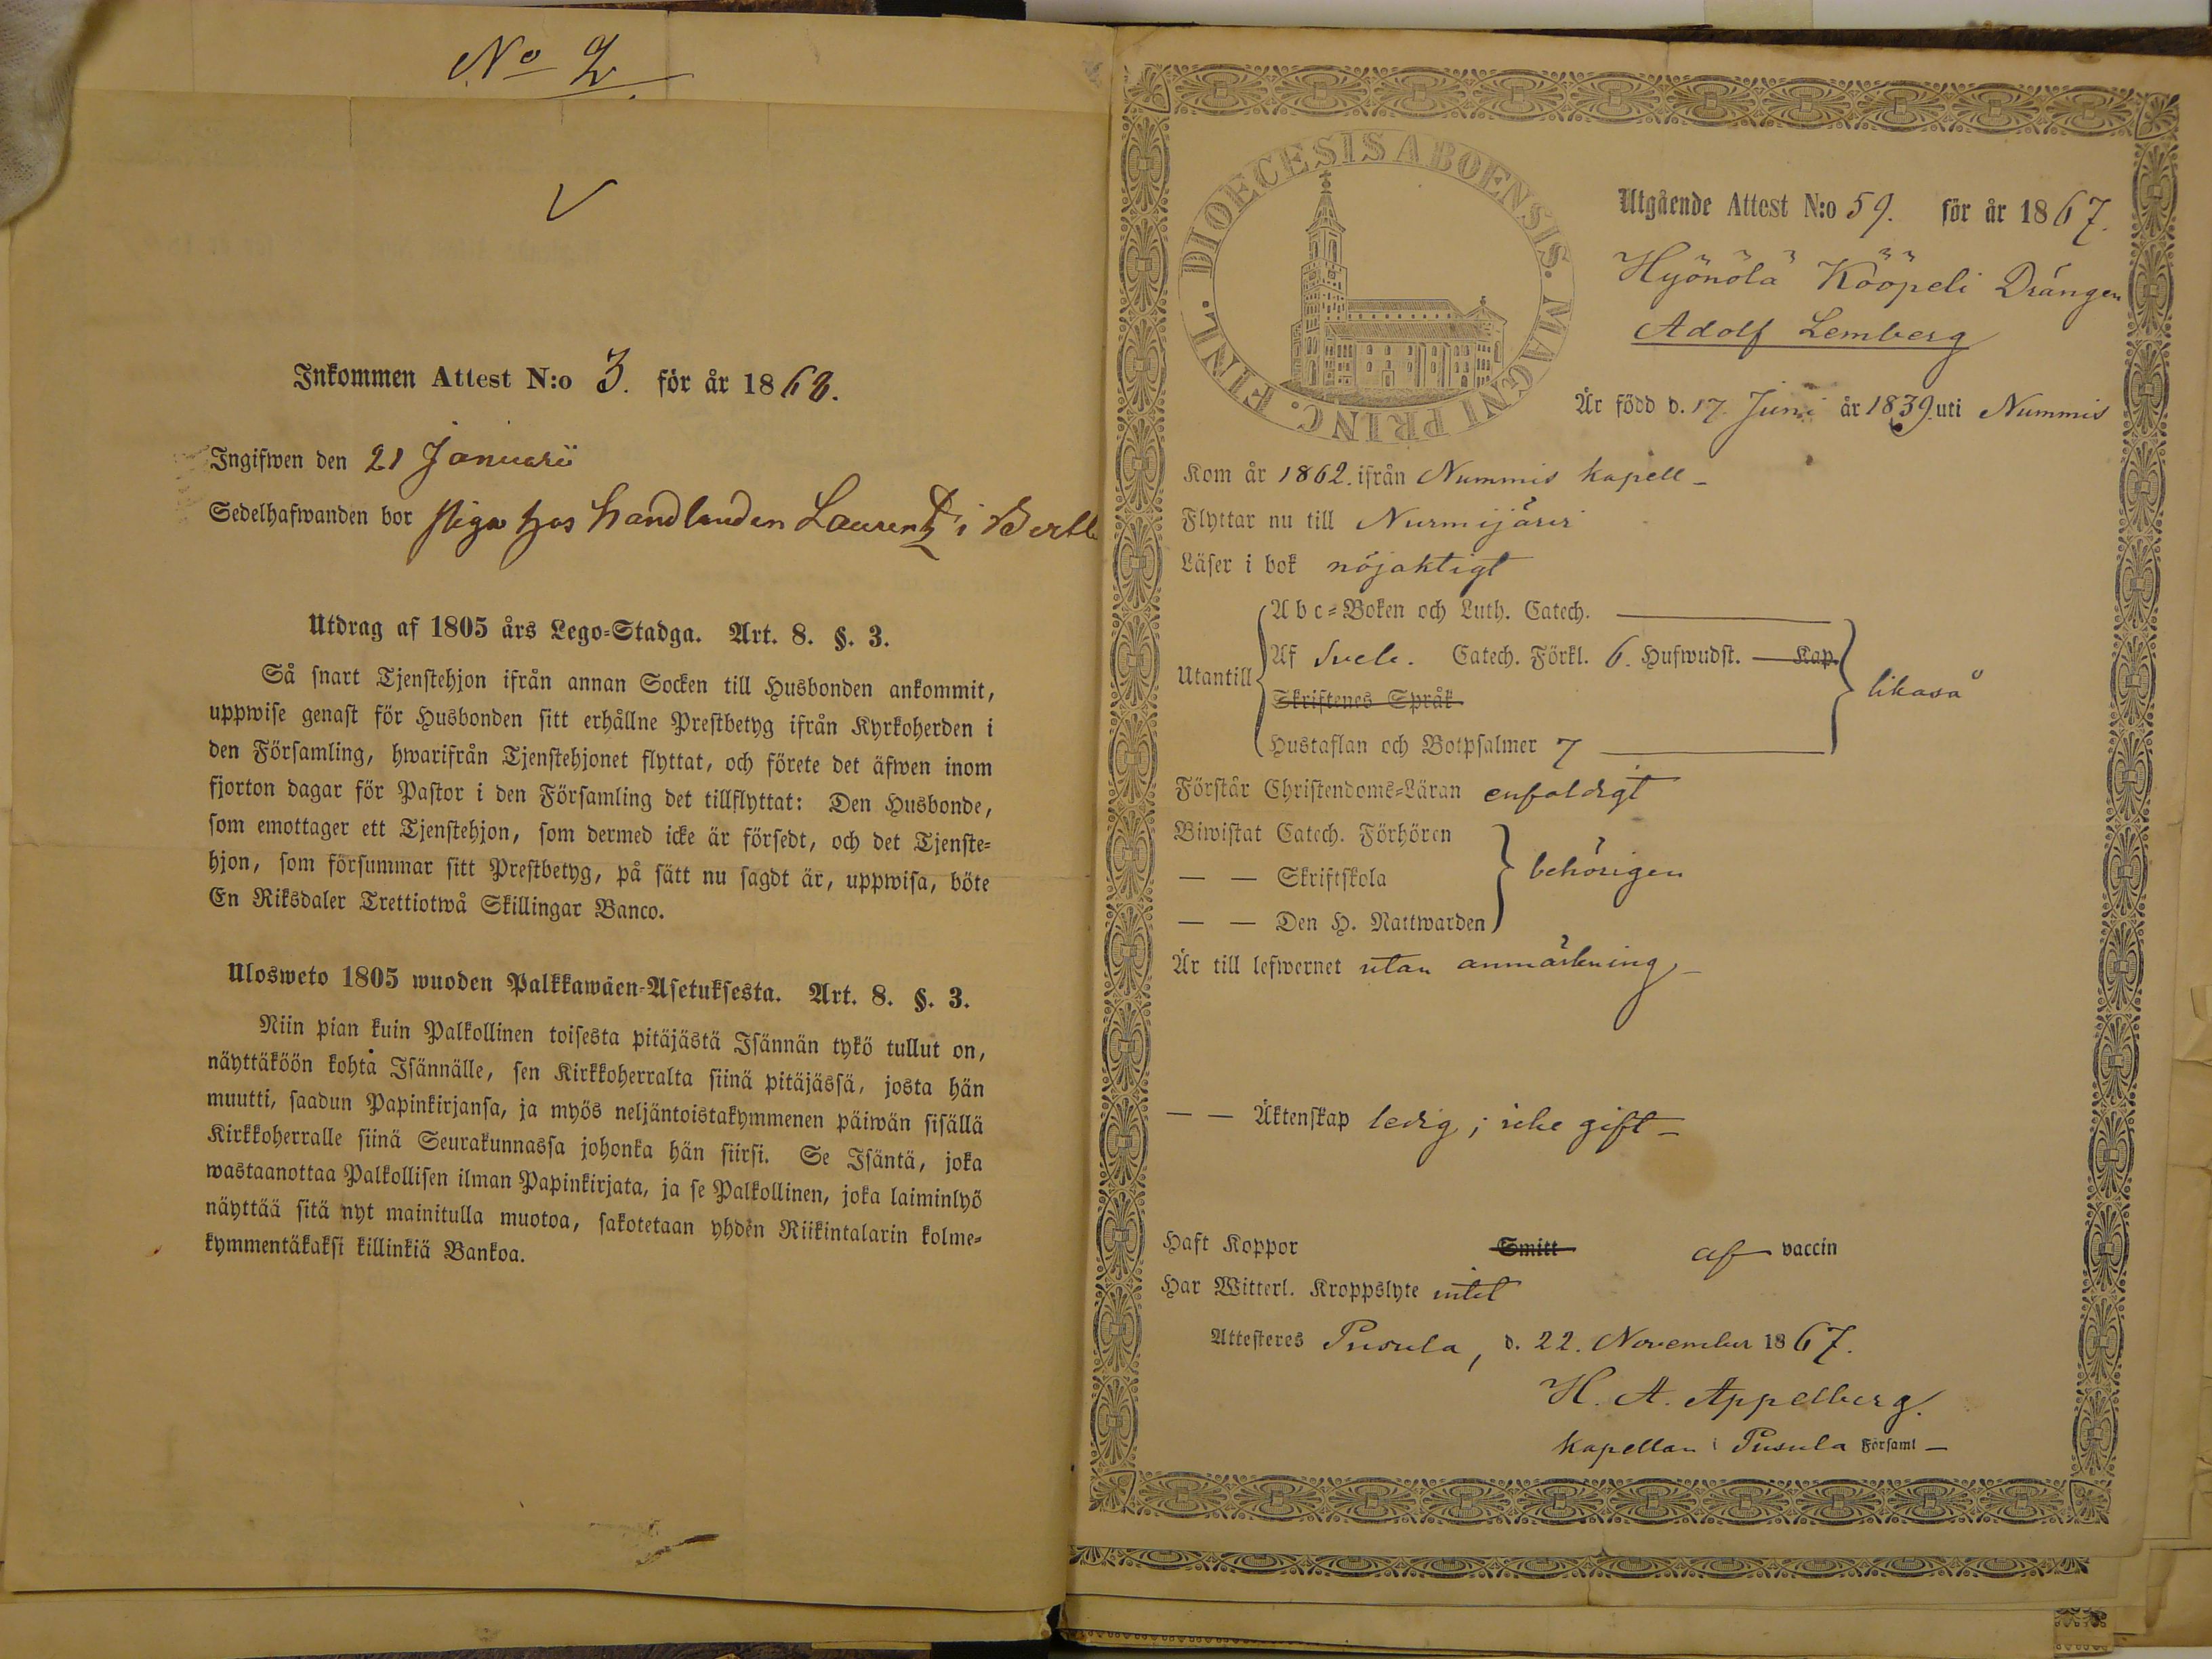 No 2
Inkommen Attest N:o 3. för år 1868.
Ingifwen den 21 Januarii
Sedelhafwanden bor piga hos handlanden Laurentz i
Utdrag af 1805 års Lego-Stadga. Art. 8. §. 3.
Så snart Tjenstehjon ifrån annan Socken till Husbonden ankommit,
uppwise genast för Husbonden sitt erhållne Prestbetyg ifrån Kyrkoherden i
den Församling, hwarifrån Tjenstehjonet flyttat, och förete det äfwen inom
fjorton dagar för Pastor i den Församling det tillflyttat: Den Husbonde,
som emottager ett Tjenstehjon, som dermed icke är försedt, och det Tjenste-
hjon, som försummar sitt Prestbetyg, på sätt nu sagdt är, uppwisa, böte
En Riksdaler Trettiotwå Skillingar Banco.
Ulosweto 1805 wuoden Palkkawäen-Asetuksesta. Art. 8. §. 3.
Niin pian kuin Palkollinen toisesta pitäjästä Isännän tykö tullut on,
näyttäköön kohta Isännälle, sen Kirkkoherralta siinä pitäjässä, josta hän
muutti, saadun Papinkirjansa, ja myös neljäntoistakymmenen päiwän sisällä
Kirkkoherralle siinä Seurakunnassa johonka hän siirsi. Se Isäntä, joka
wastaanottaa Palkollisen ilman Papinkirjata, ja se Palkollinen, joka laiminlyö
näyttää sitä nyt mainitulla muotoa, sakotetaan yhden Riikintalarin kolme-
kymmentäkaksi killinkiä Bankoa.
DIOECESIS ABOENSIS. MAGNI PRINC. FINL.
Utgående Attest N:o 59. för år 1867.
Hyönölä Kööpeli Drängen
Adolf Lemberg
Är född d. 17 Juni år 1839. uti Nummis
Kom år 1862. ifrån Nummis kapell –
Flyttar nu till Nurmijärvi
Läser i bok nöjaktigt
Abc-Boken och Luth. Catech.
Utantill Af Sveb. Catech. Förkl. 6. Hufwudst. Kap. likaså
Skriftenes Språk
Hustaflan och Botpsalmer 7
Förstår Christendoms-Läran enfaldigt
Biwistat Catech. Förhören
— — Skriftskola behörigen
— — Den H. Nattwarden
Är till lefwernet utan anmärkning –
— — Äktenskap ledig; icke gift –
Haft Koppor Smitt af vaccin
Har Witterl. Kroppslyte intet
Attesteres Pusula, d. 22. November 1867.
H. A. Appelberg.
Kapellan i Pusula Församl –